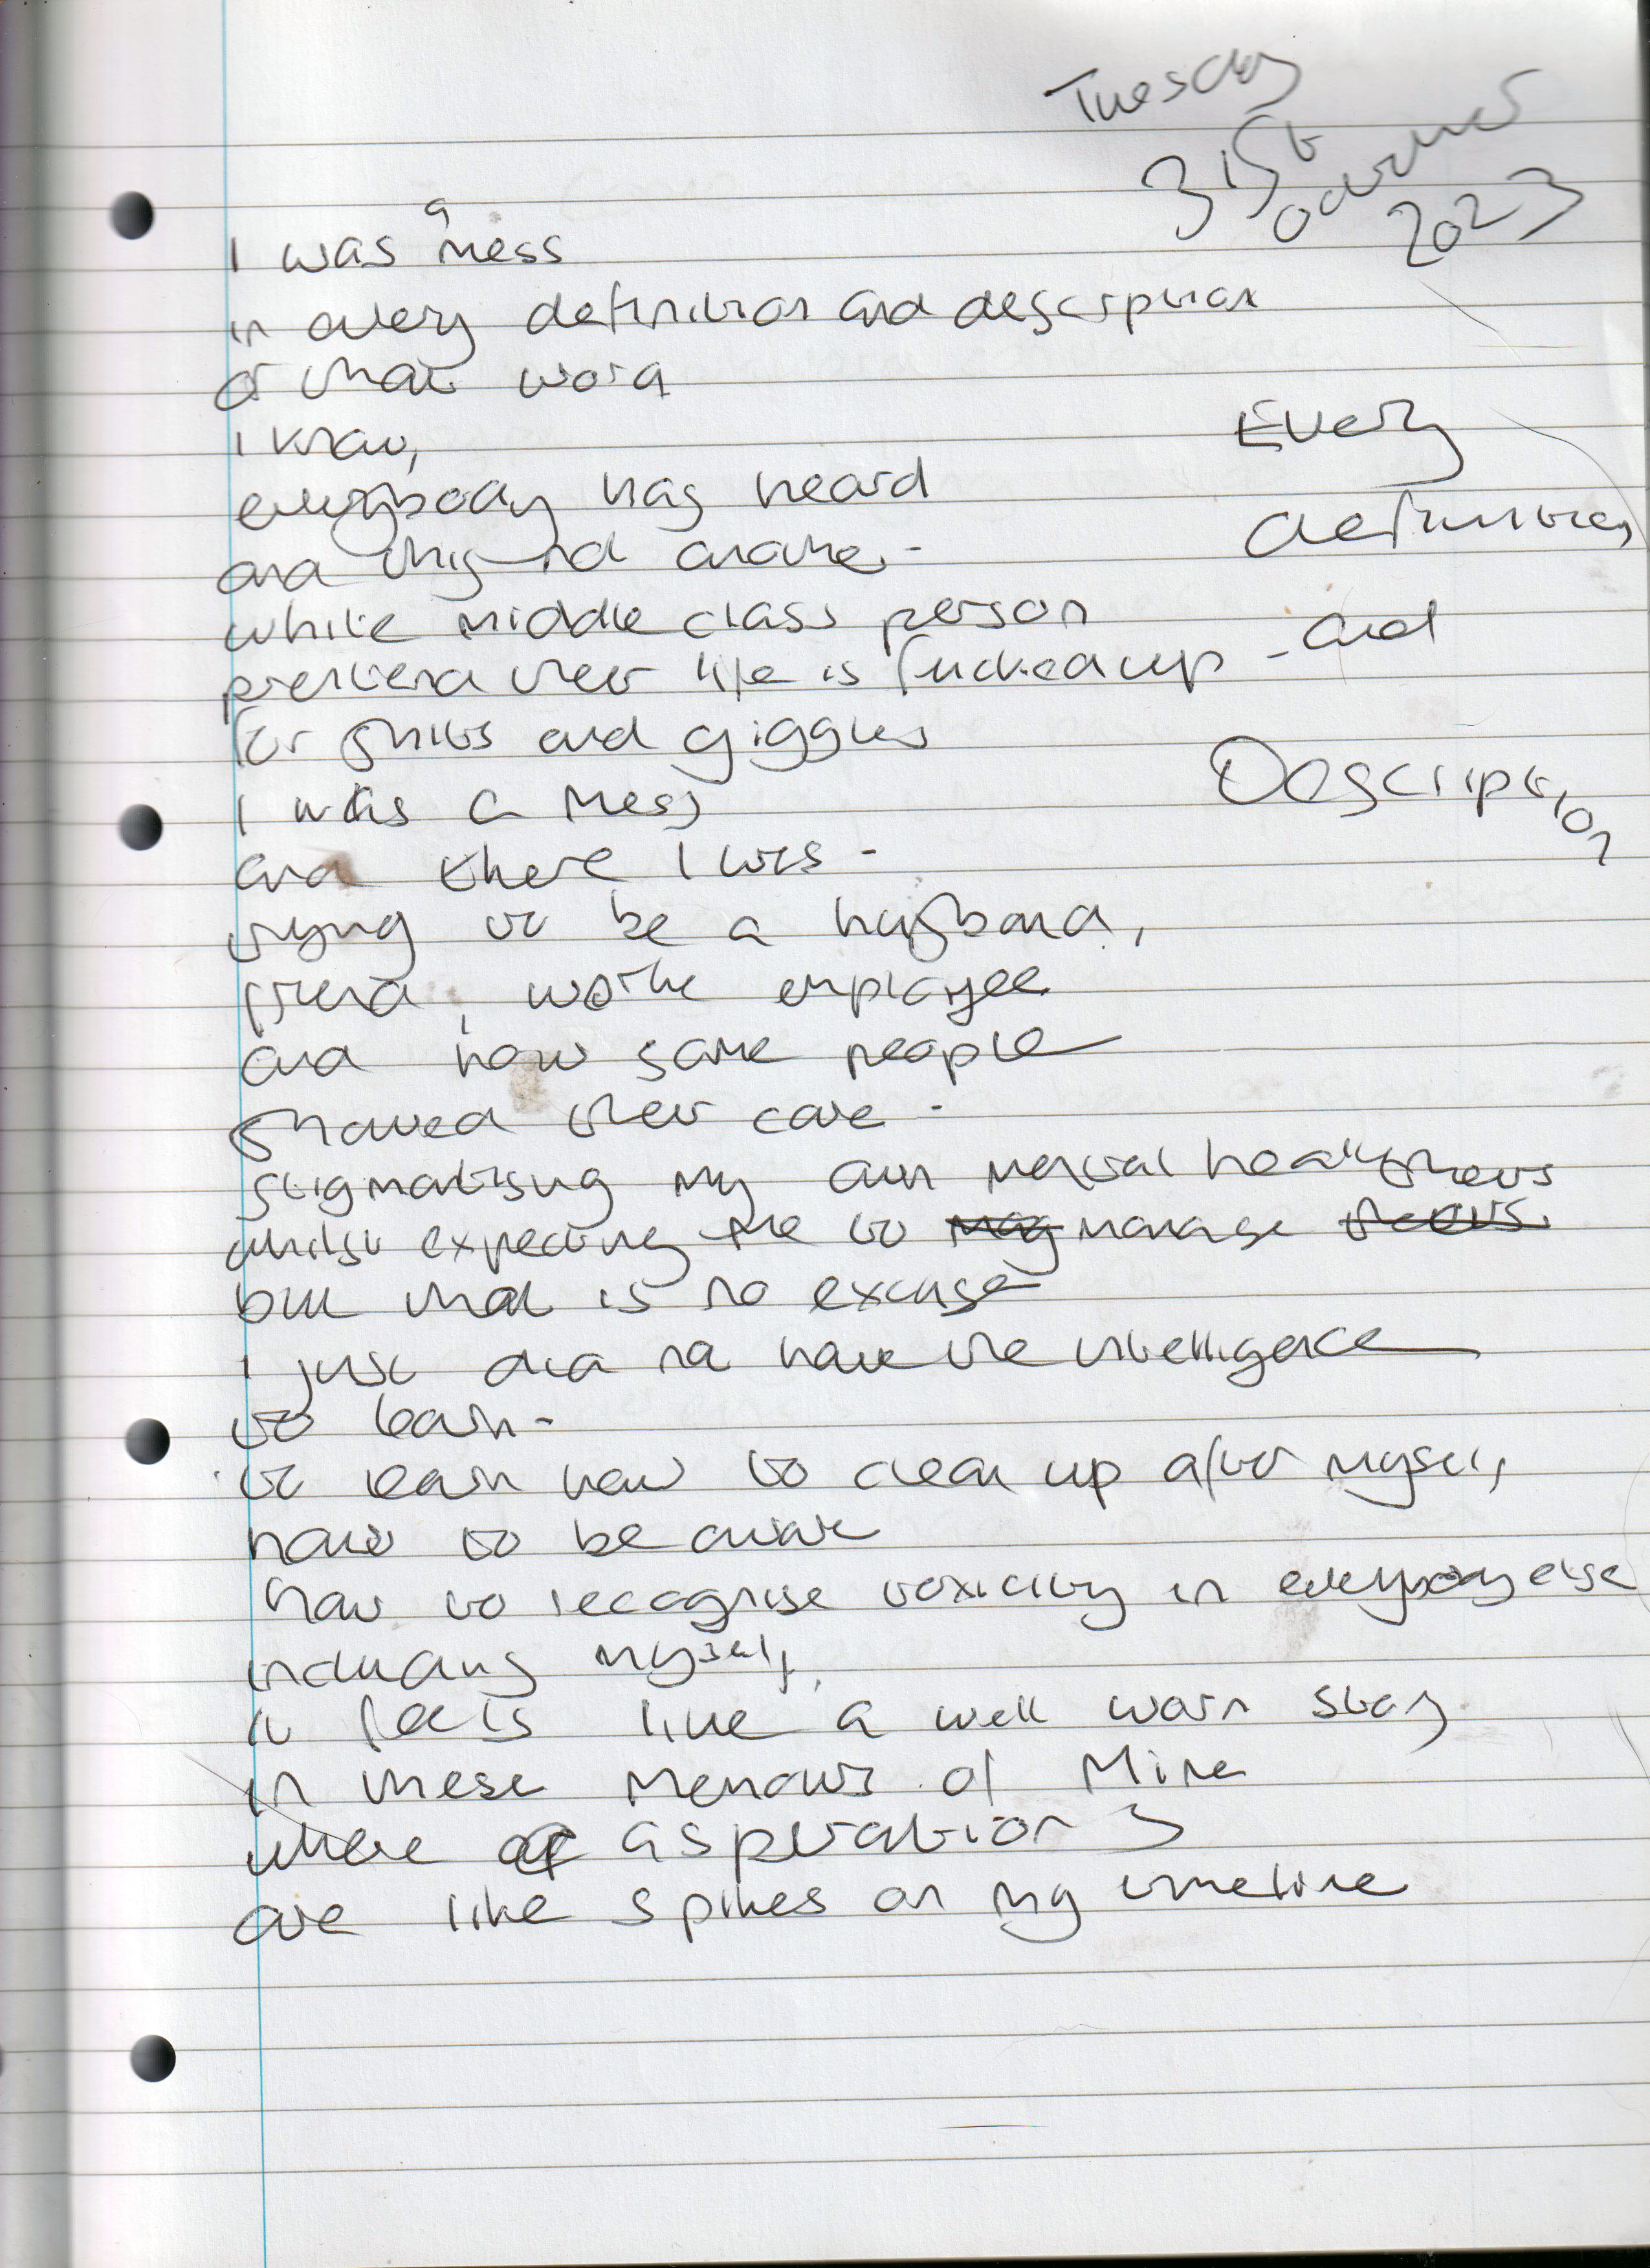 Tuesday
31st
October
2023
I was a mess
in every definition and description
of that word
I know,
everybody has heard
and this is not another -
white middle class person
pretend their life is fucked up -
for shits and giggles
I was a mess
and there I was -
trying to be a husband,
friend, worthe employee
and how some people
showed their care -
stigmatising my own mental health
whilst expecting me to manage
but that is no excuse
I just did not have the intelligence
to learn -
to learn how to clean up after myself,
how to be aware
how to recognise toxicity in everybody else
including myself,
it feels like a well worn story
in these memories of Mine
where aspirations
are like spikes on my timeline
Every
definition
and
Description